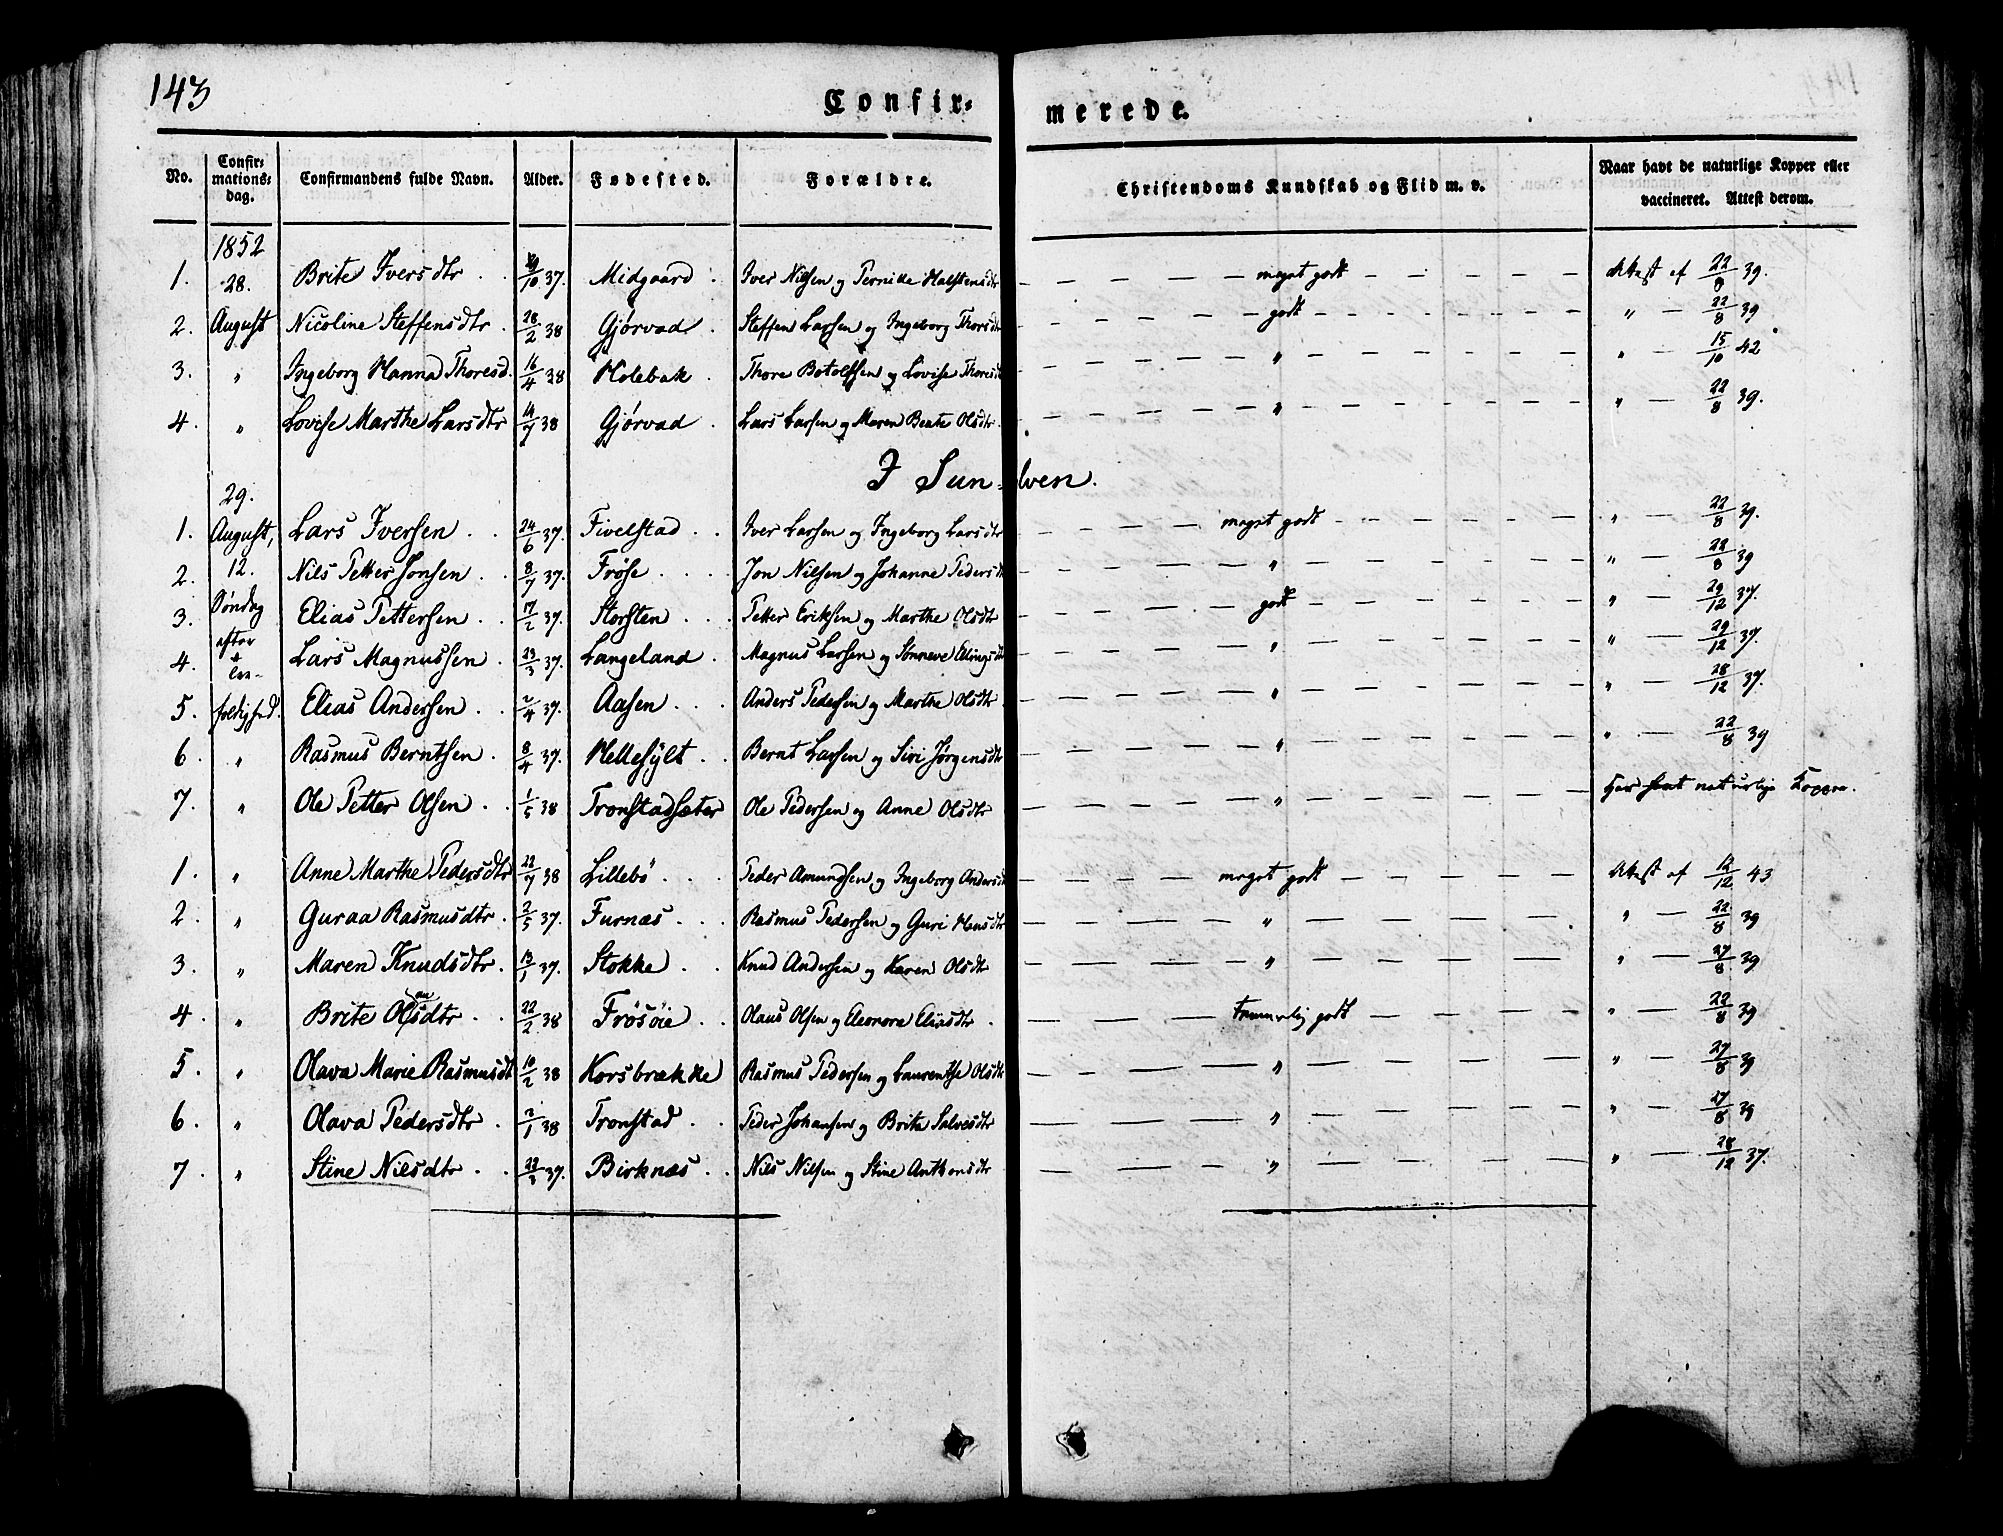 143
Confir-
merede.
No. Confirmations-dag. Confirmandens fulde Navn. Alder. Fødested. Forældre. Christendoms Kundskab og Flid m. v. Naar havt de naturlige Kopper eller vaccineret. Attest derom.
1852
1. 28. Brite Iversdtr 10 37. Midgaard Iver Nilsen og Pernille Halstensdtr meget godt Attest af 22/8 39.
2. August Nicoline Steffensdtr 28/2 38 Gjørvad Steffen Larsen og Ingeborg Thorsdtr godt " 22/8 39
3. " Ingeborg Hanna Thoresd. 16/4 38 Holebak Thore Botolfsen og Lovise Thoresdt " " 15/10 42
4. " Lovise Marthe Larsdtr 14/7 38 Gjørvad Lars Larsen og Maren Beate Olsdtr " " 22/8 39.
I Sunelven.
29.
1. August, Lars Iversen 24/6 37. Fivelstad Iver Larsen og Ingeborg Larsdtr meget godt " 22/8 39.
2. 12. Nils Petter Jonsen 8/7 37. Frøse Jon Nilsen og Johanne Pedersdt " " 22/8 39
3. Søndag Elias Pettersen 17/2 37. Storsten Petter Eriksen og Marthe Olsdtr godt " 29/12 37.
4. efter Lars Magnussen 23/3 37. Langeland Magnus Larsen og Sonneve Ellingsdt " " 29/12 37.
5. foldighed. Elias Andersen 2/4 37. Aasen Anders Pedersen og Marthe Olsdtr " " 28/12 37.
6. " Rasmus Berntsen 8/4 37. Hellesylt Bernt Larsen og Siri Jørgensdtr " " 22/8 39
7. " Ole Petter Olsen 1/5 38 Tronstadsæter Ole Pedersen og Anne Olsdtr " Har havt naturlige Kopper.
1. " Anne Marthe Pedersdtr 22/7 38 Lillebö Peder Amundsen og Ingeborg Andersd meget godt Attest af 12/12 43
2. " Guraa Rasmusdtr 2/5 37. Furnæs Rasmus Pedersen og Guri Hansdtr " " 22/8 39
3. " Maren Knudsdtr 13/1 37. Stokke Knud Andersen og Karen Olsdtr " " 27/8 39
4. " Brite Olausdtr 22/2 38 Frøsøie Olaus Olsen og Eleonora Eliasdtr temmelig godt " 22/8 39
5. " Olava Marie Rasmusdt 10/2 38 Korsbrække Rasmus Pedersen og Laurentse Olsdtr " " 27/8 39
6. " Olava Pedersdtr 2/1 38 Tronstad Peder Johansen og Brite Salvesdtr " " 27/8 39
7. " Stine Nilsdtr 37. Birknæs Nils Nilsen og Stine Anthonsdtr " " 28/12 37.